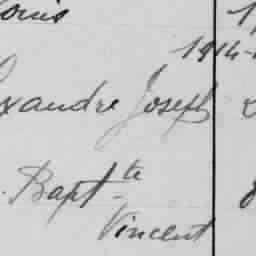 ouis
1914-
xandre Joseph
. Bapt^te
Vincent